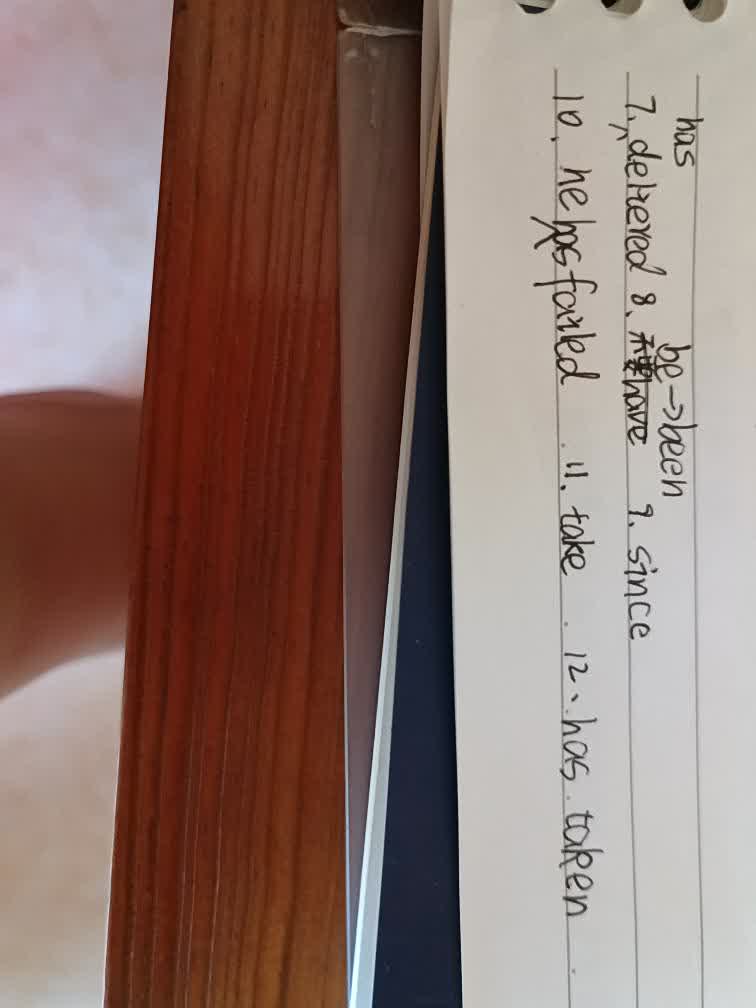 has
7. delivered 8. be→been 9. since
10. he has failed. 11. take. 12. has taken.